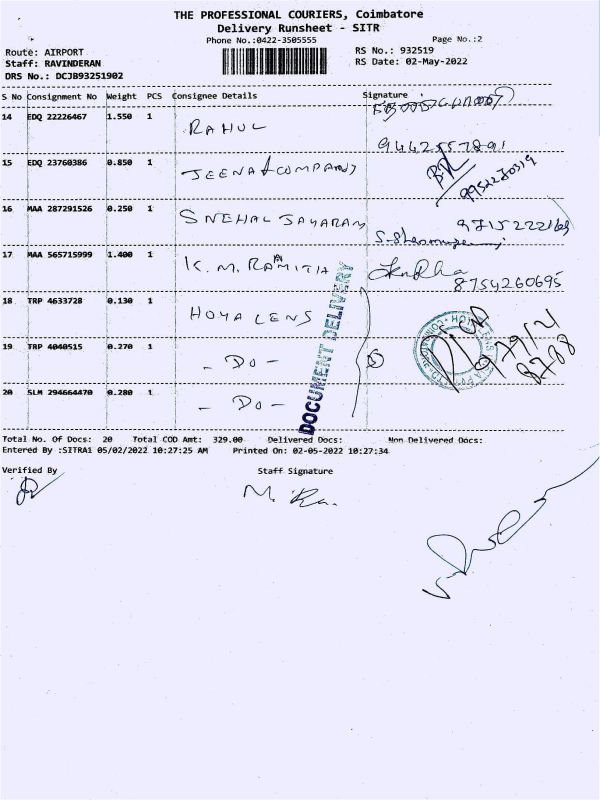 THE PROFESSIONAL COURIERS, Coimbatore
Delivery Runsheet - SITR
Phone No.:0422-3505555 Page No.:2
Route: AIRPORT RS No.: 932519
Staff: RAVINDERAN RS Date: 02-May-2022
DRS No.: DCJB93251902
S No Consignment No Weight PCS Consignee Details Signature
14 EDQ 22226467 1.550 1 RAHUL
9442557891
15 EDQ 23760386 0.850 1 JEENA & COMPANY
9952270319
16 MAA 287291526 0.250 1 SNEHAL JAYARAM
17 MAA 565715999 1.400 1 K.M. RAMITIA
8754260695
18 TRP 4633728 0.130 1 HOYA LENS
19 TRP 4040515 0.270 1 - DO -
20 SLM 294664470 0.280 1 - DO -
DOCUMENT DELIVERY
Total No. Of Docs: 20 Total COD Amt: 329.00 Delivered Docs: Non Delivered Docs:
Entered By :SITRA1 05/02/2022 10:27:25 AM Printed On: 02-05-2022 10:27:34
Verified By Staff Signature